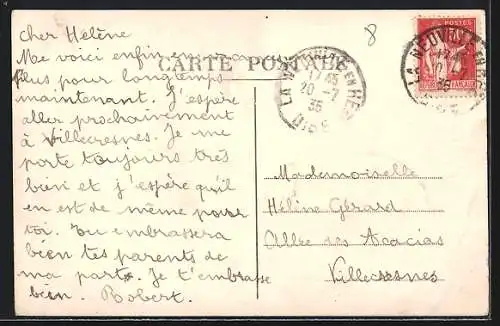 cher Helène
Me voici enfin en
plus pour longtemps
maintenant. J'espère
aller prochainement
à Villecresnes. Je me
porte toujours très
bien et j'espère qu'il
en est de même pour
toi. Tu embrassera
bien tes parents de
ma part. Je t'embrasse
bien. Robert.
CARTE POSTALE
8
LA NEUVILLE EN HEZ
17 45
20 -7
35
OISE
POSTES
LA NEUVILLE EN HEZ
35
OISE
Mademoiselle
Hélène Gérard
Allée des Acacias
Villecresnes